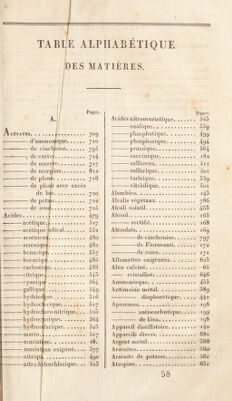 TABLE ALPHABÉTIQUE
DES MATIÈRES.
Pages.
A.
ACÉTATES. 709
— d'ammoniaque. 710
— de cinchonine. 795
— de cuivre. 714
— de mercure. 717
— de morphine. 812
— de plomb. 718
— de plomb avec excès
de base. 720
— de potasse. 710
— de soude. 712
Acides. 479
— acétique. 527
— acétique
— arsénieux. 480
— arsenique. 481
— benzoïque. 557
— borique. 485
— carbonique. 488
— citrique. 545
— cyanique. 564
— gallique. 549
— hydriodique. 516
— hydrochlorique. 517
— hydrochloro-nitrique. 525
— hydrocyanique. 564
— 525
— 517
— muriatique. 
— muriatique oxigéné. 577
— nitrique. 490
— nitro-hydrochlorique. 525
Pages.
Acides nitromuriatique. 525
— oxalique. 559
— phosphatique. 499
— phosphorique. 494
— prussique. 564
— succinique. 180
— sulfureux. 511
— sulfurique. 501
— tartrique. 559
— vitriolique. 501
Alambics. 145
Alcalis végétaux. 786
Alcali volatil. 455
Alcool. 165
— rectifié. 168
Alcoolats. 169
— de cinchonine. 797
— de Fioravanti. 171
— de roses. 171
Allumettes oxigénées. 625
Alun calciné. 65
— cristallisé. 646
Ammoniaque. 455
Antimoine métal. 589
— diaphorétique. 441
Apozèmes. 198
— antiscorbutique. 199
— de kina. 198
Appareil distillatoire. 140
— divers. 889
Argent métal. 388
Arsenites. 580
Arsenite de potasse. 582
Atropine. 832
58